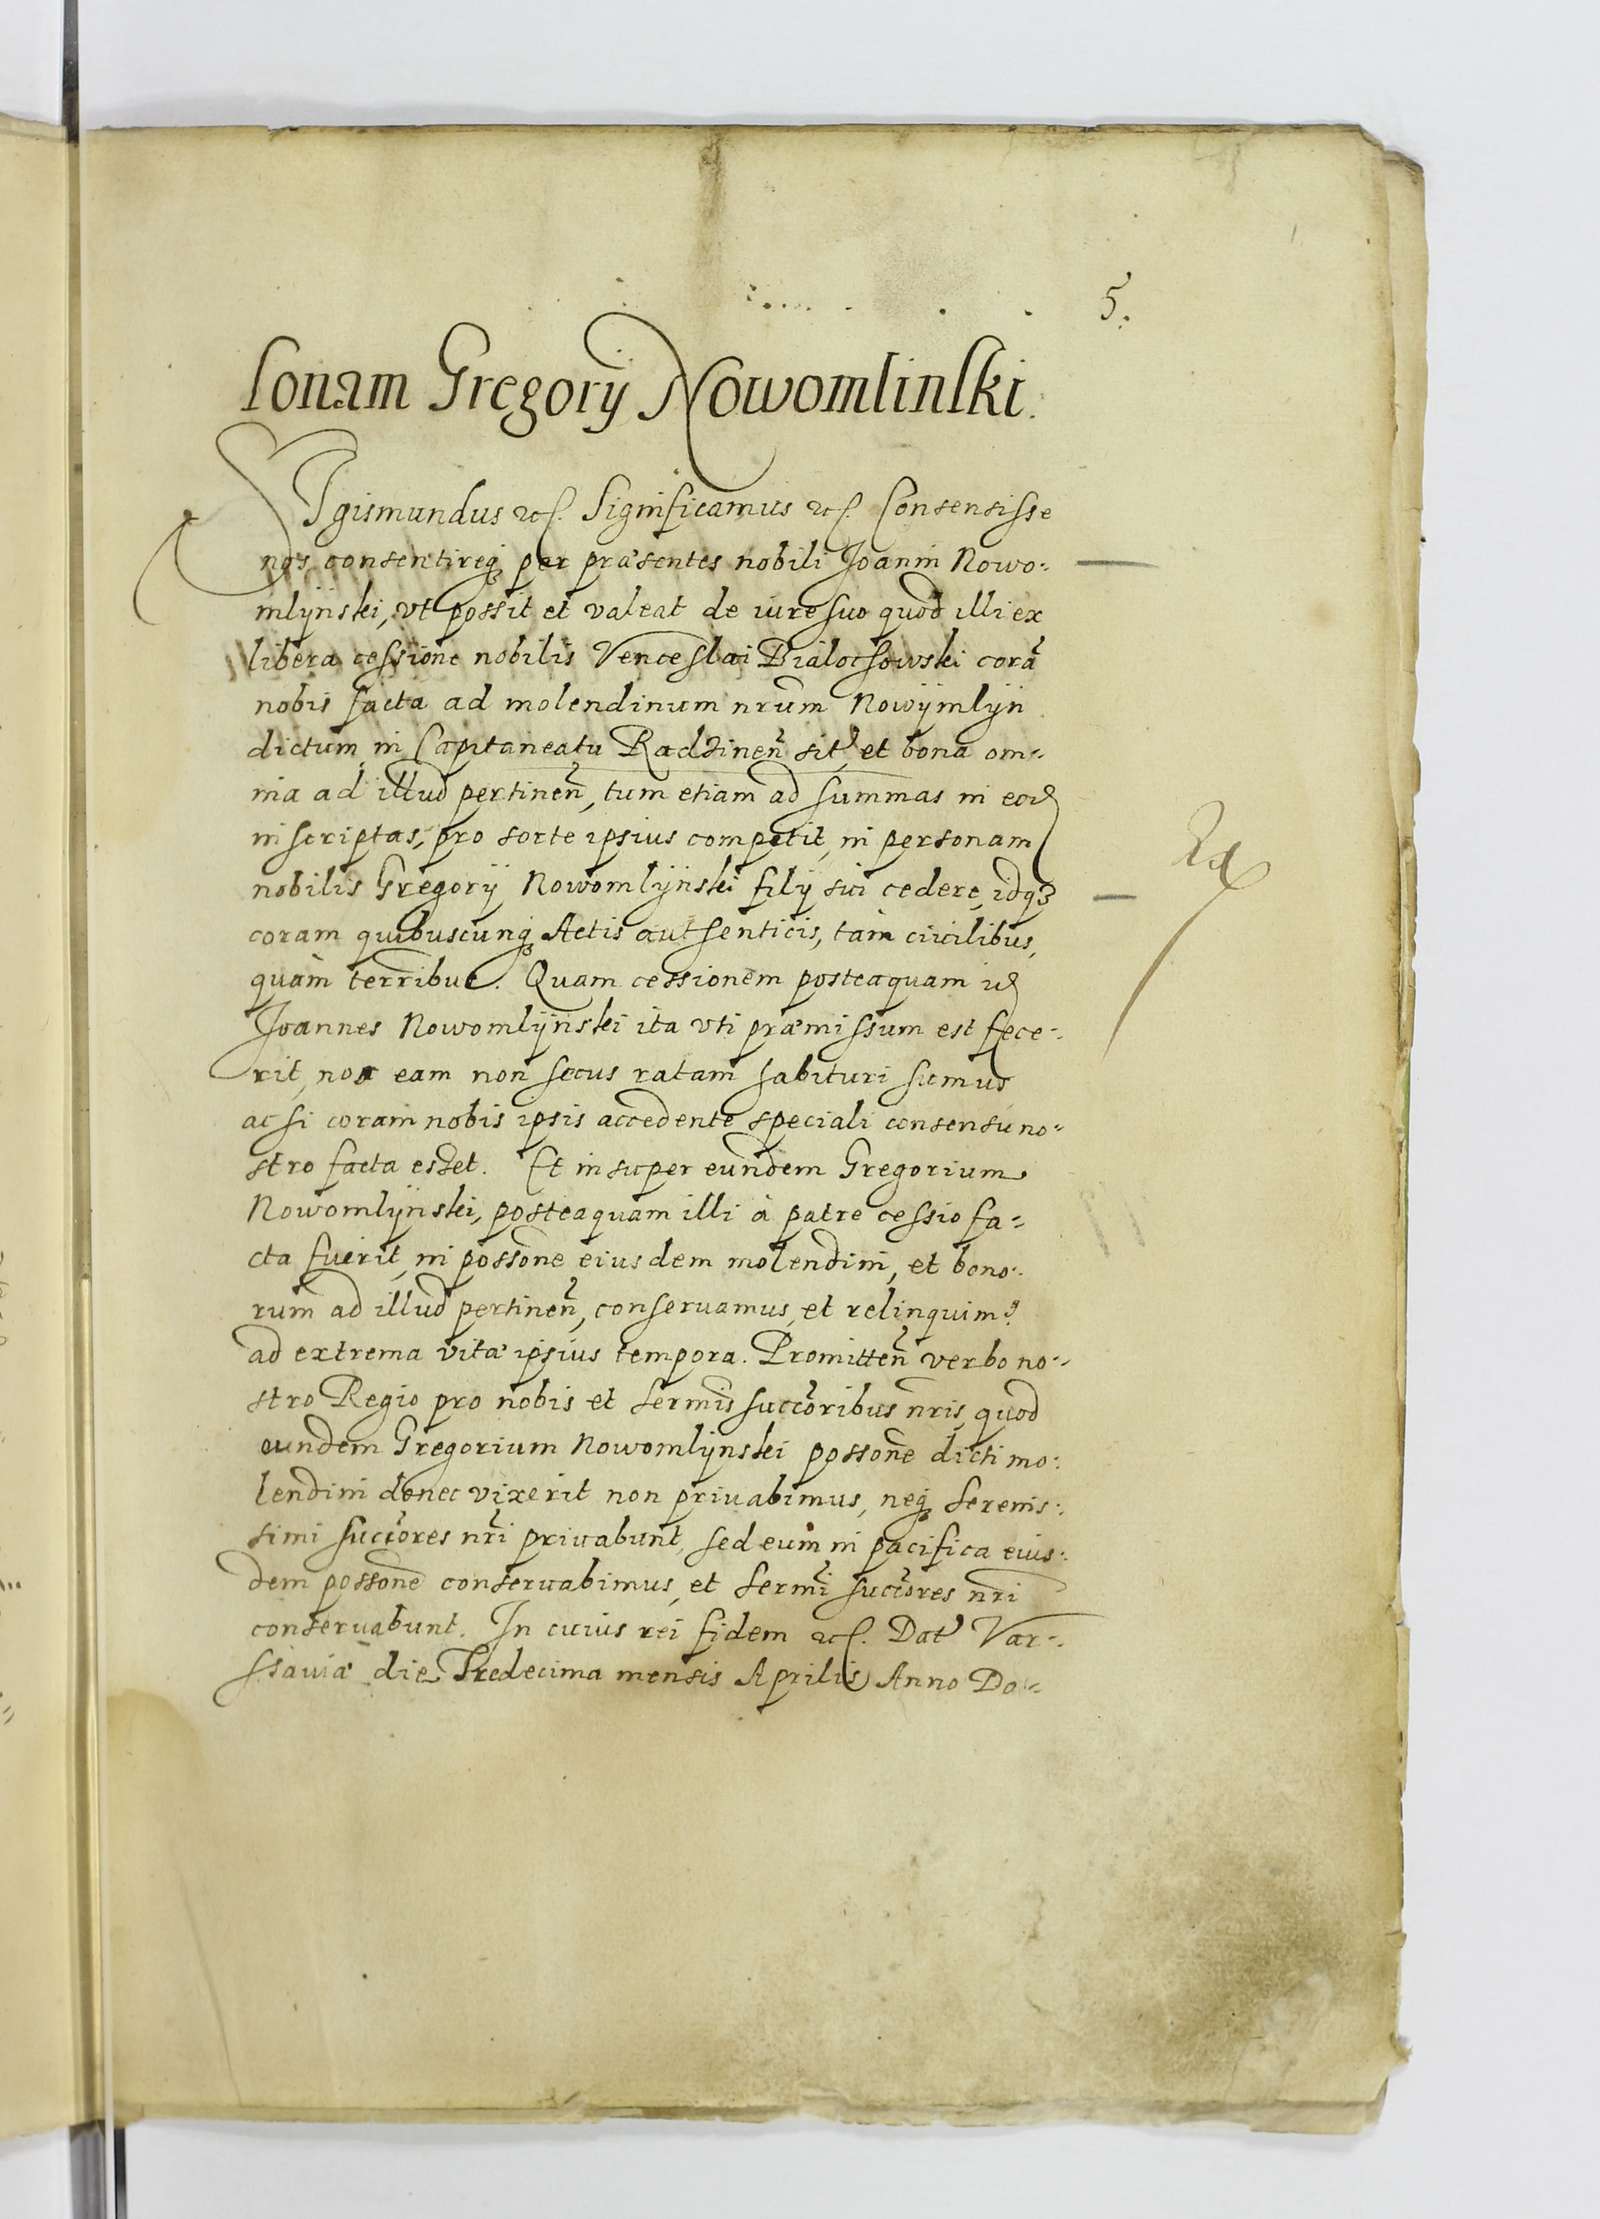 5.
sonam Gregorij Nowomlinski.
Sigismundus etc. Significamus etc. Consensisse
nos, consentireq; per præsentes nobili Joanni Nowo-
mlijnski, vt possit et valeat de iure suo quod illi ex
libera cessione nobilis Venceslai Dialochowski corã
nobis facta ad molendinum nrũm Nowijmlijn
dictum in Capitaneatu Radzineñ sit, et bona om-
nia ad illud pertineñ, tum etiam ad summas in eod
inscriptas, pro sorte ipsius competit, in personam
nobilis Gregorij Nowomlijnski filij sui cedere, idq3
coram quibuscunq; Actis authenticis, tàm ciuilibus,
quàm terr̃ibus. Quam cessionem posteaquam id
Joannes Nowomlijnski ita vti præmissum est fece-
rit, nos eam non secus ratam habituri sumus
ac si coram nobis ipsis accedente speciali consensu no-
stro facta esset. Et insuper eundem Gregorium
Nowomlijnski, posteaquam illi à patre cessio fa-
cta fuerit, in possoñe eiusdem molendini, et bono-
rum ad illud pertineñ, conseruamus, et relinquim9
ad extrema vitæ ipsius tempora. Promitteñ verbo no-
stro Regio pro nobis et sermis succoribus nris, quod
eundem Gregorium Nowomlijnski possoñe dicti mo-
lendini donec vixerit non priuabimus, neq; serenis-
simi succores nri priuabunt, sed eum in pacifica eius-
dem possoñe conseruabimus, et sermi succores nri
conseruabunt. In cuius rei fidem etc. Dat Var-
ssauiæ die Tredecima mensis Aprilis Anno Do-